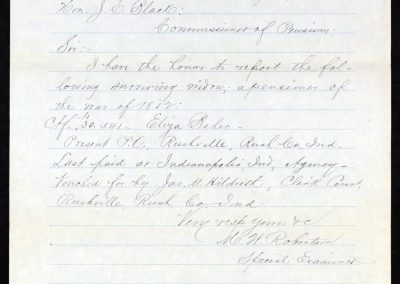 Hon. J. C. Black:
Commissioner of Pensions:
Sir:-
I have the honor to report the fol-
lowing surviving widow, a pensioner of
the war of 1812:
Ctf. 30.541. Eliza Beher-
Present P.O. Rushville, Rush Co. Ind.
Last paid at Indianapolis, Ind., Agency-
Vouched for by Jas. M. Hildreth, Clerk Court,
Rushville, Rush Co. Ind
Very resp. yours &c
M. W. Robertson
Special Examiner